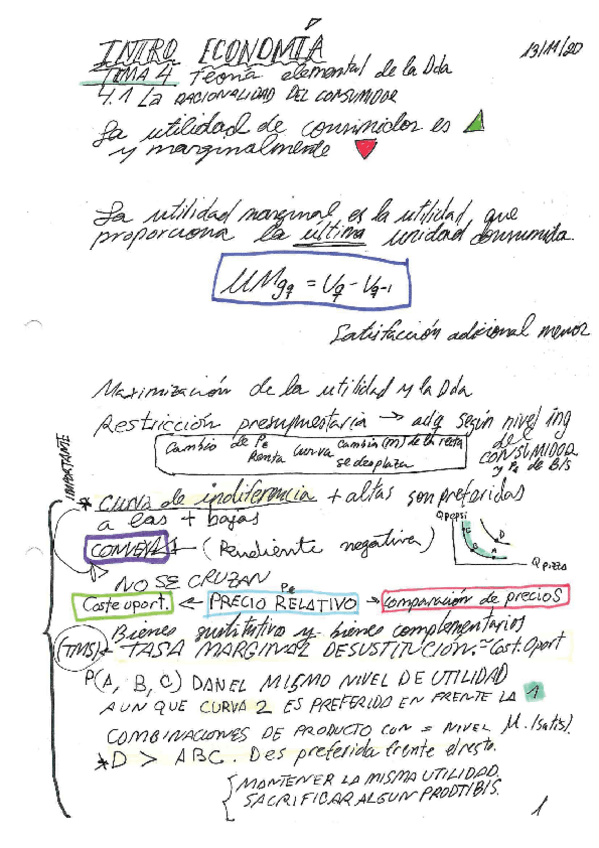 INTRO ECONOMÍA
13/11/20
TEMA 4 Teoría elemental de la Dda
4.1 La RACIONALIDAD DEL CONSUMIDOR
La utilidad de consumidor es
y marginalmente
La utilidad marginal es la utilidad que
proporciona la última unidad consumida.
UMgq = Uq - Uq-1
Satisfacción adicional menor
Maximización de la utilidad y la Dda
Restricción presupuestaria → adq según nivel ing
del
CONSUMIDOR
y Pe de B/s
Cambio de Pe Curva cambia (m) de la recta
Renta se desplaza
IMPORTANTE
* CURVA de indiferencia + altas son preferidas
a las + bajas
Q pepsi
D
Q pizza
CONVEXA (Pendiente negativa)
NO SE CRUZAN
Pe
Coste oport. ← PRECIO RELATIVO → comparación de precios
Bienes sustitutivo y bienes complementarios
(TMS) TASA MARGINAL DE SUSTITUCIÓN = Cost. Oport
P(A, B, C) DAN EL MISMO NIVEL DE UTILIDAD
AUNQUE CURVA 2 ES PREFERIDO EN FRENTE LA 1
COMBINACIONES DE PRODUCTO CON = NIVEL M. (satis).
*D > ABC. D es preferida frente el resto.
MANTENER LA MISMA UTILIDAD.
SACRIFICAR ALGUN PRODTIBIS.
1